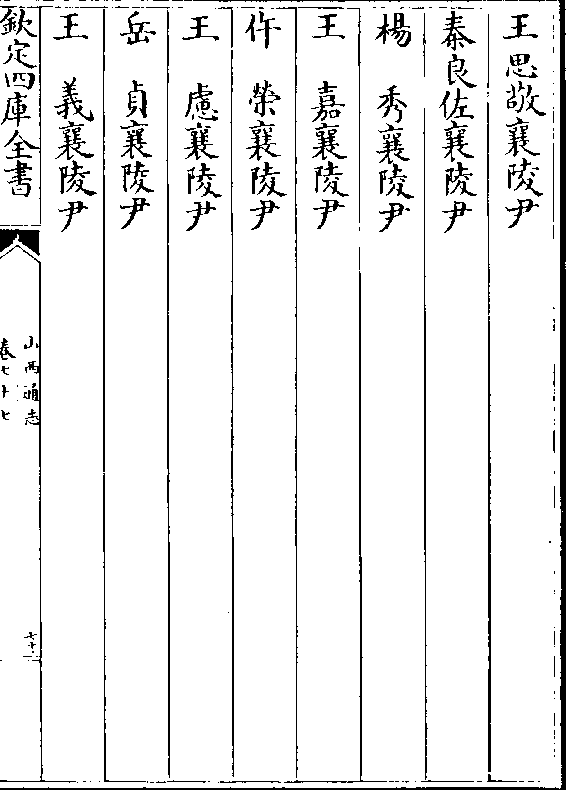 王思敬襄陵尹
秦良佐襄陵尹
楊　秀襄陵尹
王　嘉襄陵尹
仵　榮襄陵尹
王　慮襄陵尹
岳　貞襄陵尹
王　義襄陵尹
欽定四庫全書
山西通志
卷七十七